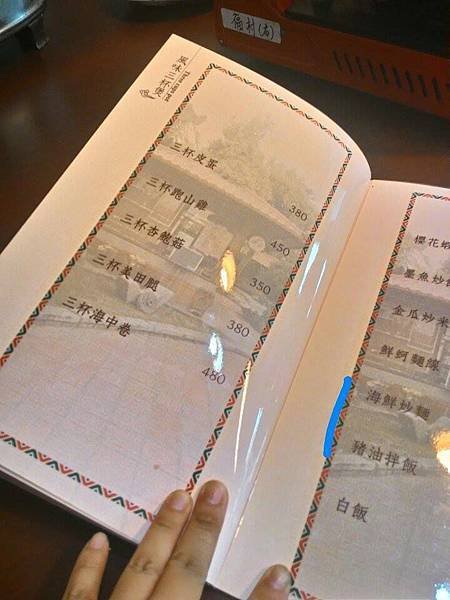 風味三杯煲
三杯皮蛋 380
三杯跑山雞 450
三杯杏鮑菇 350
三杯美田腿 380
三杯海中卷 480
櫻花蝦
墨魚炒
金瓜炒米
鮮蚵麵線
海鮮炒麵
豬油拌飯
白飯